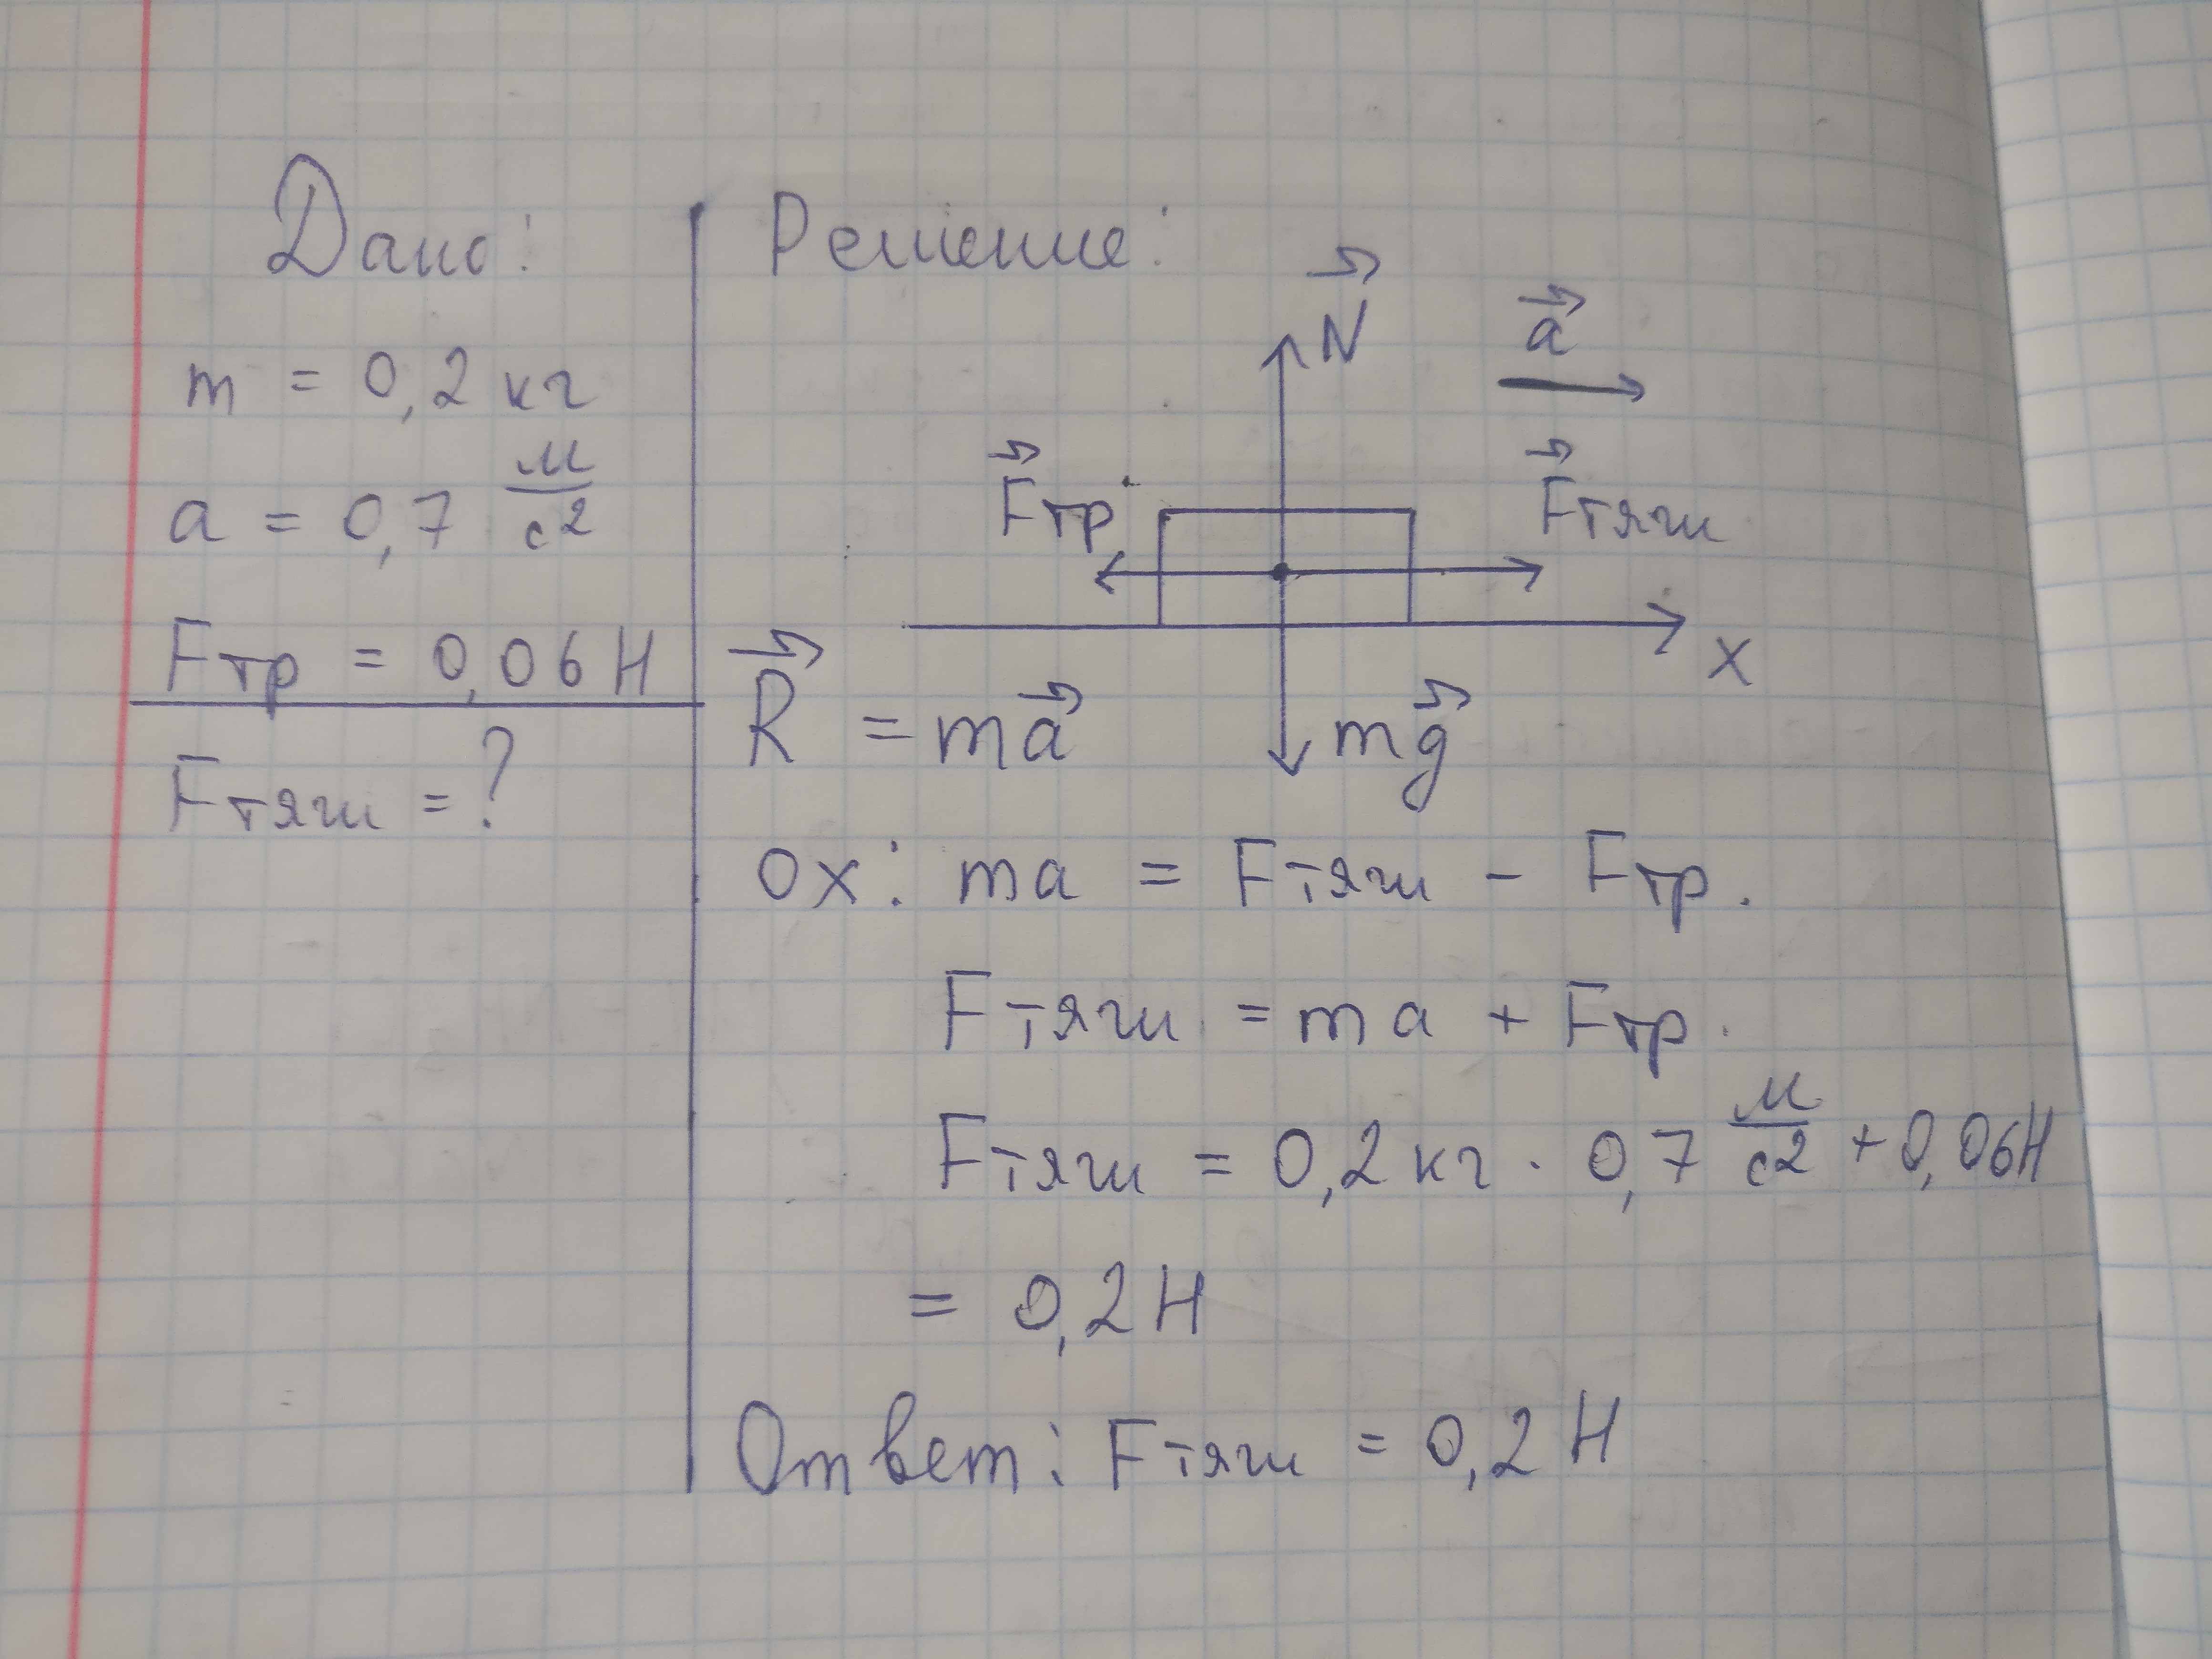 Дано:
m = 0,2 кг
a = 0,7 м/с²
Fтр = 0,06 Н
Fтяги = ?
Решение:
N
a
Fтр
Fтяги
x
mg
R = ma
ox: ma = Fтяги - Fтр.
Fтяги = ma + Fтр.
Fтяги = 0,2 кг · 0,7 м/с² + 0,06Н
= 0,2 Н
Ответ: Fтяги = 0,2 Н